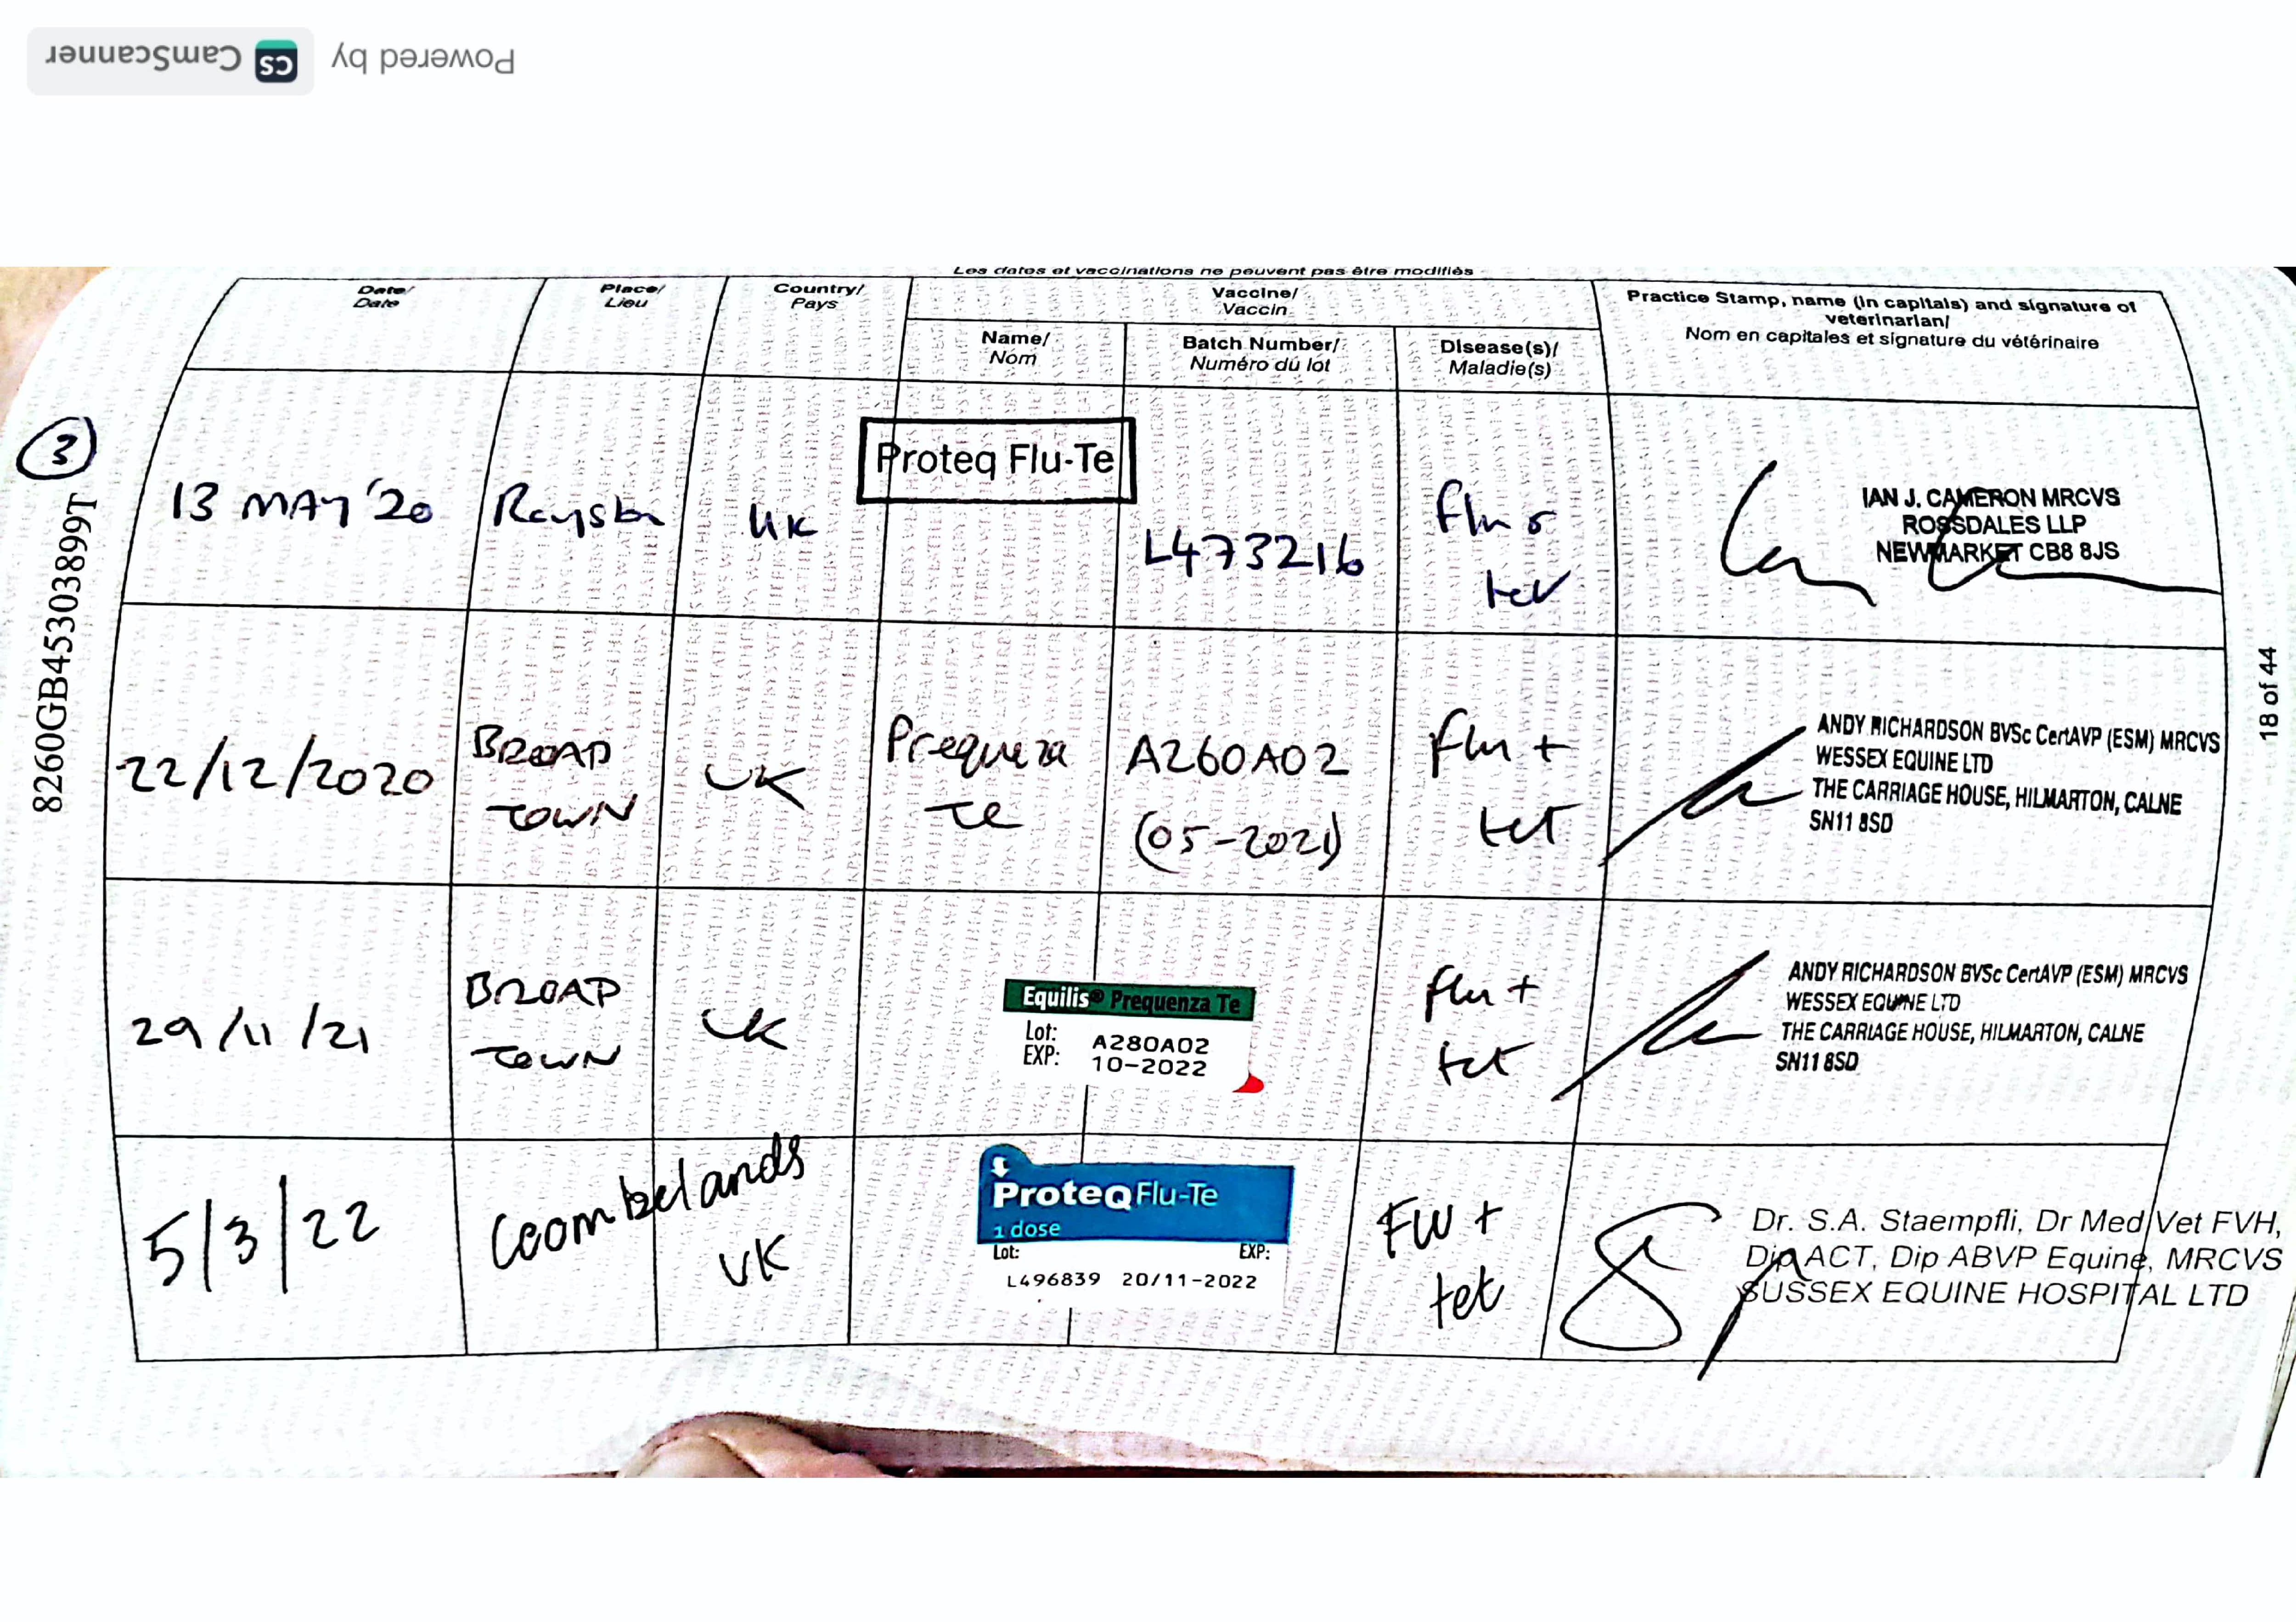 Powered by CS CamScanner
Les dates et vaccinations ne peuvent pas être modifiés
Date/
Date
Place/
Lieu
Country/
Pays
Vaccine/
Vaccin
Name/
Nom
Batch Number/
Numéro du lot
Disease(s)/
Maladie(s)
Practice Stamp, name (in capitals) and signature of
veterinarian/
Nom en capitales et signature du vétérinaire
3
8260GB45303899T
18 of 44
13 MAY '20
Royston
UK
Proteq Flu-Te
L473216
Flu &
tet
IAN J. CAMERON MRCVS
ROSSDALES LLP
NEWMARKET CB8 8JS
22/12/2020
BROAD
TOWN
UK
Prequenza
Te
A260A02
(05-2021)
flu +
tet
ANDY RICHARDSON BVSc CertAVP (ESM) MRCVS
WESSEX EQUINE LTD
THE CARRIAGE HOUSE, HILMARTON, CALNE
SN11 8SD
29/11/21
BROAD
TOWN
UK
Equilis® Prequenza Te
Lot: A280A02
EXP: 10-2022
flu +
tet
ANDY RICHARDSON BVSc CertAVP (ESM) MRCVS
WESSEX EQUINE LTD
THE CARRIAGE HOUSE, HILMARTON, CALNE
SN11 8SD
5/3/22
Coombelands
UK
ProteqFlu-Te
1 dose
Lot: EXP:
L496839 20/11-2022
Flu +
tet
Dr. S.A. Staempfli, Dr Med Vet FVH,
Dip ACT, Dip ABVP Equine, MRCVS
SUSSEX EQUINE HOSPITAL LTD